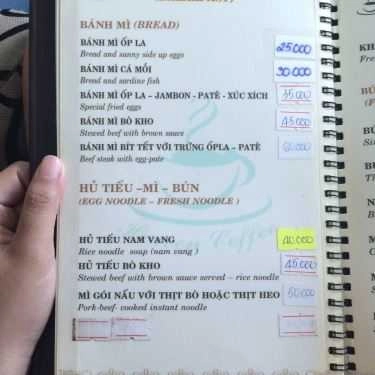 BÁNH MÌ (BREAD)
BÁNH MÌ ỐP LA 25.000
Bread and sunny side up eggs
BÁNH MÌ CÁ MỒI 30.000
Bread and sardine fish
BÁNH MÌ ỐP LA – JAMBON - PATÊ - XÚC XÍCH 35.000
Special fried eggs
BÁNH MÌ BÒ KHO 45.000
Stewed beef with brown sauce
BÁNH MÌ BÍT TẾT VỚI TRỨNG ỐPLA – PATÊ
Beef steak with egg-pate
HỦ TIẾU –MÌ – BÚN
(EGG NOODLE – FRESH NOODLE )
HỦ TIẾU NAM VANG 40.000
Rice noodle soup (nam vang )
HỦ TIẾU BÒ KHO 45.000
Stewed beef with brown sauce served – rice noodle
MÌ GÓI NẤU VỚI THỊT BÒ HOẶC THỊT HEO 50.000
Pork-beef- cooked instant noodle